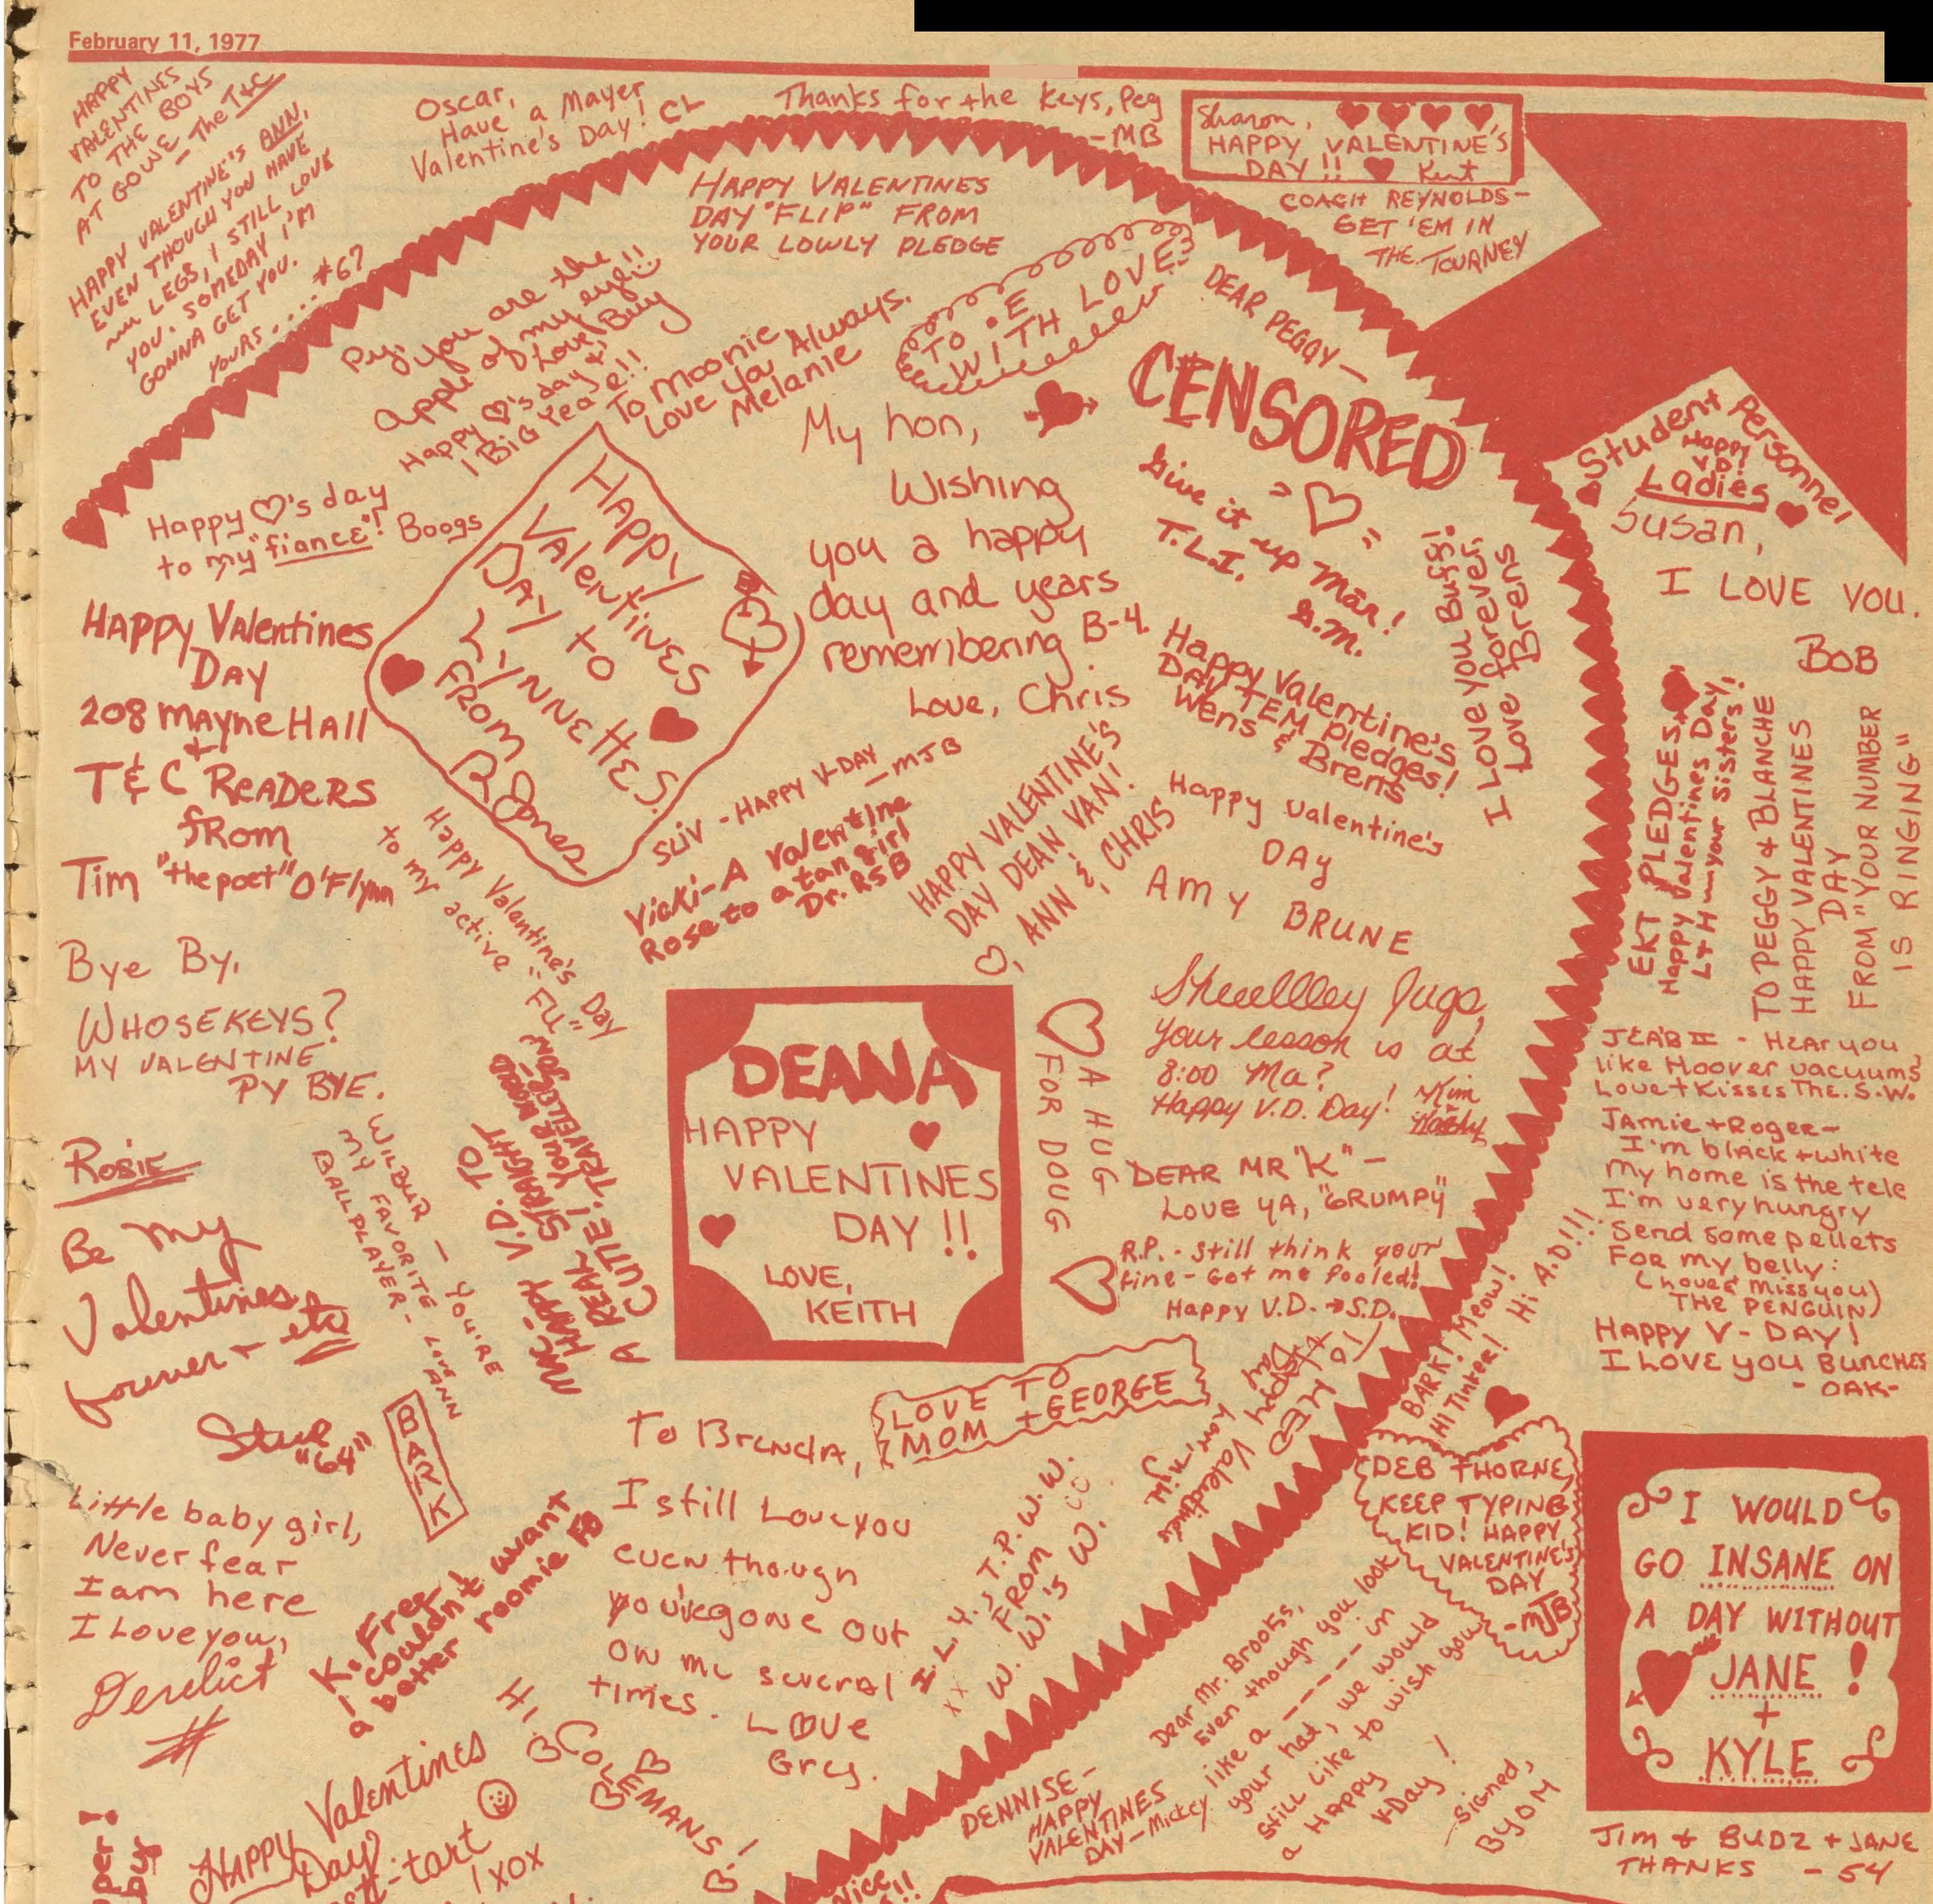 February 11, 1977
HAPPY
VALENTINES
TO THE BOYS
AT GOWE - The T&C
HAPPY VALENTINE'S ANN,
EVEN THOUGH YOU HAVE
LEGS, I STILL LOVE
YOU. SOMEDAY I'M
GONNA GET YOU.
YOURS.... #67
Oscar,
Have a Mayer
Valentine's Day! CL
Thanks for the keys, Peg
- MB
Sharon,
HAPPY VALENTINE'S
DAY!! Kent
COACH REYNOLDS-
GET 'EM IN
THE TOURNEY
HAPPY VALENTINES
DAY "FLIP" FROM
YOUR LOWLY PLEDGE
Peg, you are the
apple of my eye!!
Love, Buy
Happy ♡'s day &
1 BIG Year!!
To Moonie
Love you Always.
Melanie
TO .E
WITH LOVE
DEAR PEGGY-
CENSORED
Student Personnel
Happy
V.D!
Ladies
Susan,
I LOVE YOU.
BOB
Happy ♡'s day
to my "fiance"! Boogs
Happy
Valentines
Day to
Lynnettes.
From
R Jones
My hon,
Wishing
you a happy
day and years
remembering B-4.
Love, Chris
Give it up Man!
T.L.I. G.M.
I Love you Buffs!
Love forever,
Brens
Happy Valentine's
Day TEM Pledges!
Wens & Brens
Happy Valentines
Day
208 Mayne Hall
+
T&C Readers
from
Tim "the poet" O'Flynn
Happy Valentine's Day
to my active "Fu"
Suv - HAPPY V-DAY
- MJB
Vicki-A Valentine
Rose to a tan girl
Dr. RSB
HAPPY VALENTINE'S
DAY DEAN VAN!
♡, ANN & CHRIS
Happy Valentine's
DAY
AMY BRUNE
EKT PLEDGES,
Happy Valentines Day,
L+H your Sisters!
TO PEGGY & BLANCHE
HAPPY VALENTINES
DAY
FROM "YOUR NUMBER
IS RINGING"
Bye By,
WHOSEKEYS?
MY VALENTINE
PY BYE.
DEANA
HAPPY
VALENTINES
DAY!!
LOVE,
KEITH
♡ A HUG
FOR DOUG ♡
Shwellley Jugs,
your lesson is at
8:00 Ma?
Happy V.D. Day! Kim
JEAB II - Hear you
like Hoover vacuums
Love + Kisses The. S.W.
Jamie + Roger-
I'm black + white
my home is the tele
I'm very hungry
Send some pellets
For my belly:
(hoved miss you)
THE PENGUIN)
HAPPY V-DAY!
I LOVE YOU BUNCHES
- OAK-
DEAR MR "K"-
LOVE YA, "GRUMPY"
R.P.- still think your
fine - Got me fooled!
Happy V.D. → S.D.
Hi A.D!!!
BARK! Meow!
Hi Tinker!
Rosie
Be my
Valentines
forever + etc
Steve
"64"
WILBUR - YOU'RE
MY FAVORITE
BALLPLAYER - LOVE ANN
MC-
HAPPY V.D. TO
A REAL STRAIGHT
CUTIE! YOUR WORLD
TRAVELLER - JON
BARK
LOVE TO
MOM + GEORGE
To Brenda,
I still Love you
even though
you've gone out
on me several
times. Love
Greg.
To KED
Happy Valentines
Day
Little baby girl,
Never fear
I am here
I Love you,
Derelict
#
K. Free
I couldn't want
a better roomie FB
H.L.Y., T.P.W.W.
FROM
W.W.'s W.
xx
DEB THORNE,
KEEP TYPING
KID! HAPPY
VALENTINE'S
DAY
-MJB
I WOULD
GO INSANE ON
A DAY WITHOUT
JANE!
+
KYLE
Jim & BUDZ + JANE
THANKS - 54
Hi COLEMANS!
Dear Mr. Brooks,
Even though you look
like a ----- in
your hat, we would
still like to wish you
a Happy
V-Day!
-Signed,
BYOM
DENNISE-
HAPPY
VALENTINES
DAY-Mickey
HAPPY Valentines
Day
-tart
xox
Nice